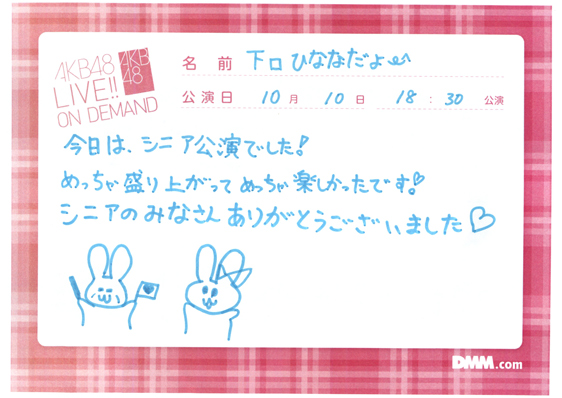 AKB48
LIVE!!
ON DEMAND
AKB
48
名前 下口ひななだよ
公演日 10月 10日 18:30 公演
今日は、シニア公演でした!
めっちゃ盛り上がってめっちゃ楽しかったです。♡
シニアのみなさんありがとうございました♡
DMM.com